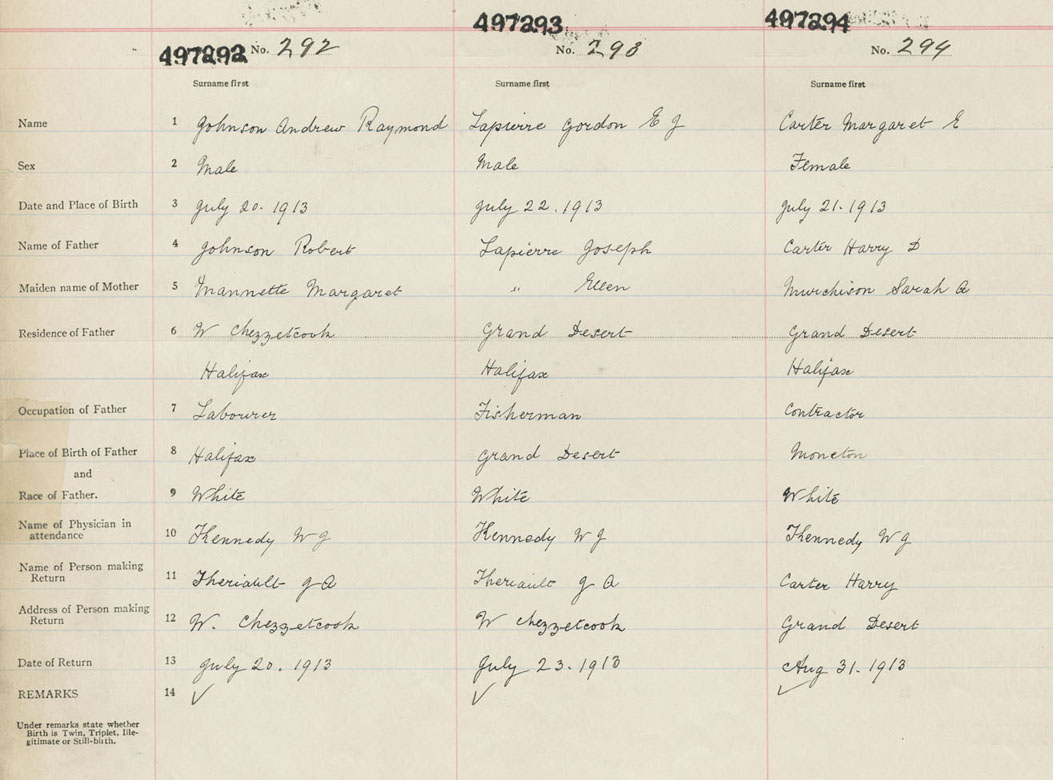 497292 No. 292 497293 No. 293 497294 No. 294
Surname first Surname first Surname first
Name 1 Johnson Andrew Raymond Lapierre Gordon E J Carter Margaret E
Sex 2 Male Male Female
Date and Place of Birth 3 July 20. 1913 July 22. 1913 July 21. 1913
Name of Father 4 Johnson Robert Lapierre Joseph Carter Harry D
Maiden name of Mother 5 Mannette Margaret " Ellen Murchison Sarah A
Residence of Father 6 W Chezzetcook Grand Desert Grand Desert
Halifax Halifax Halifax
Occupation of Father 7 Labourer Fisherman Contractor
Place of Birth of Father 8 Halifax Grand Desert Moncton
and
Race of Father. 9 White White White
Name of Physician in
attendance 10 Kennedy W J Kennedy W J Kennedy W J
Name of Person making
Return 11 Theriault J A Theriault J A Carter Harry
Address of Person making
Return 12 W. Chezzetcook W Chezzetcook Grand Desert
Date of Return 13 July 20. 1913 July 23. 1913 Aug 31. 1913
REMARKS 14 ✓ ✓ ✓
Under remarks state whether
Birth is Twin, Triplet, Ille-
gitimate or Still-birth.